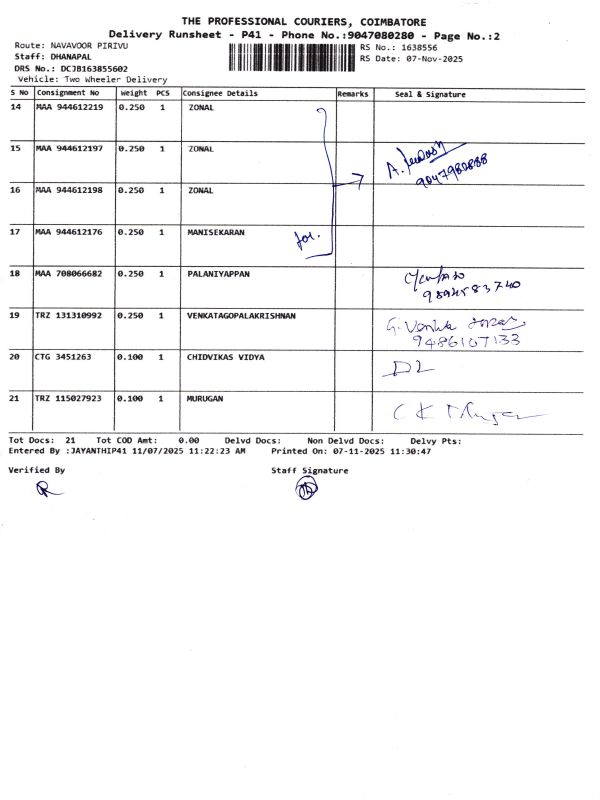 THE PROFESSIONAL COURIERS, COIMBATORE
Delivery Runsheet - P41 - Phone No.:9047080280 - Page No.:2
Route: NAVAVOOR PIRIVU
RS No.: 1638556
Staff: DHANAPAL
RS Date: 07-Nov-2025
DRS No.: DCJB163855602
Vehicle: Two Wheeler Delivery
S No Consignment No Weight PCS Consignee Details Remarks Seal & Signature
14 MAA 944612219 0.250 1 ZONAL
15 MAA 944612197 0.250 1 ZONAL
9047980888
16 MAA 944612198 0.250 1 ZONAL
17 MAA 944612176 0.250 1 MANISEKARAN
for.
18 MAA 708066682 0.250 1 PALANIYAPPAN
9894583740
19 TRZ 131310992 0.250 1 VENKATAGOPALAKRISHNAN
G. Venkata
9486107133
20 CTG 3451263 0.100 1 CHIDVIKAS VIDYA
DL
21 TRZ 115027923 0.100 1 MURUGAN
C K Murugan
Tot Docs: 21 Tot COD Amt: 0.00 Delvd Docs: Non Delvd Docs: Delvy Pts:
Entered By :JAYANTHIP41 11/07/2025 11:22:23 AM Printed On: 07-11-2025 11:30:47
Verified By Staff Signature